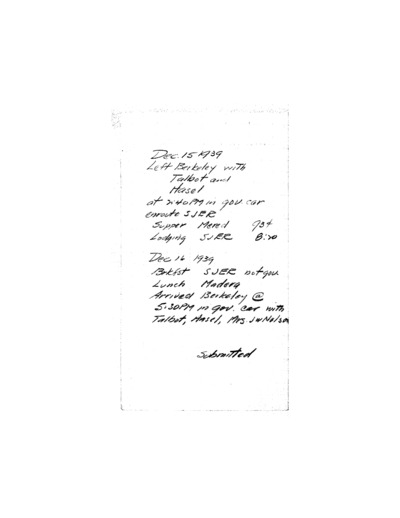 Dec. 15 1939
Left Berkeley with
Talbot and
Hasel
at 2:40 PM in gov. car
enroute SJER
Supper Merced 93¢
Lodging SJER
Dec 16 1939
Brkfst SJER not gov.
Lunch Madera
Arrived Berkeley @
5:30 PM in gov. car with
Talbot, Hasel, Mrs J W Nelson
Submitted